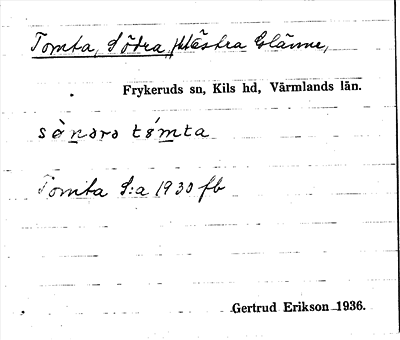 Tomta, Södra, Västra Glänne,
Frykeruds sn, Kils hd, Värmlands län.
sȯ̀ṇdrɔ tɵ́mta
Tomta S:a 1930 fb
Gertrud Erikson 1936.